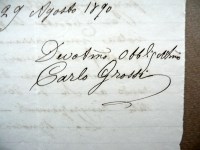 29 Agosto 1890
Devotmo Obblgatmo
Carlo Grossi